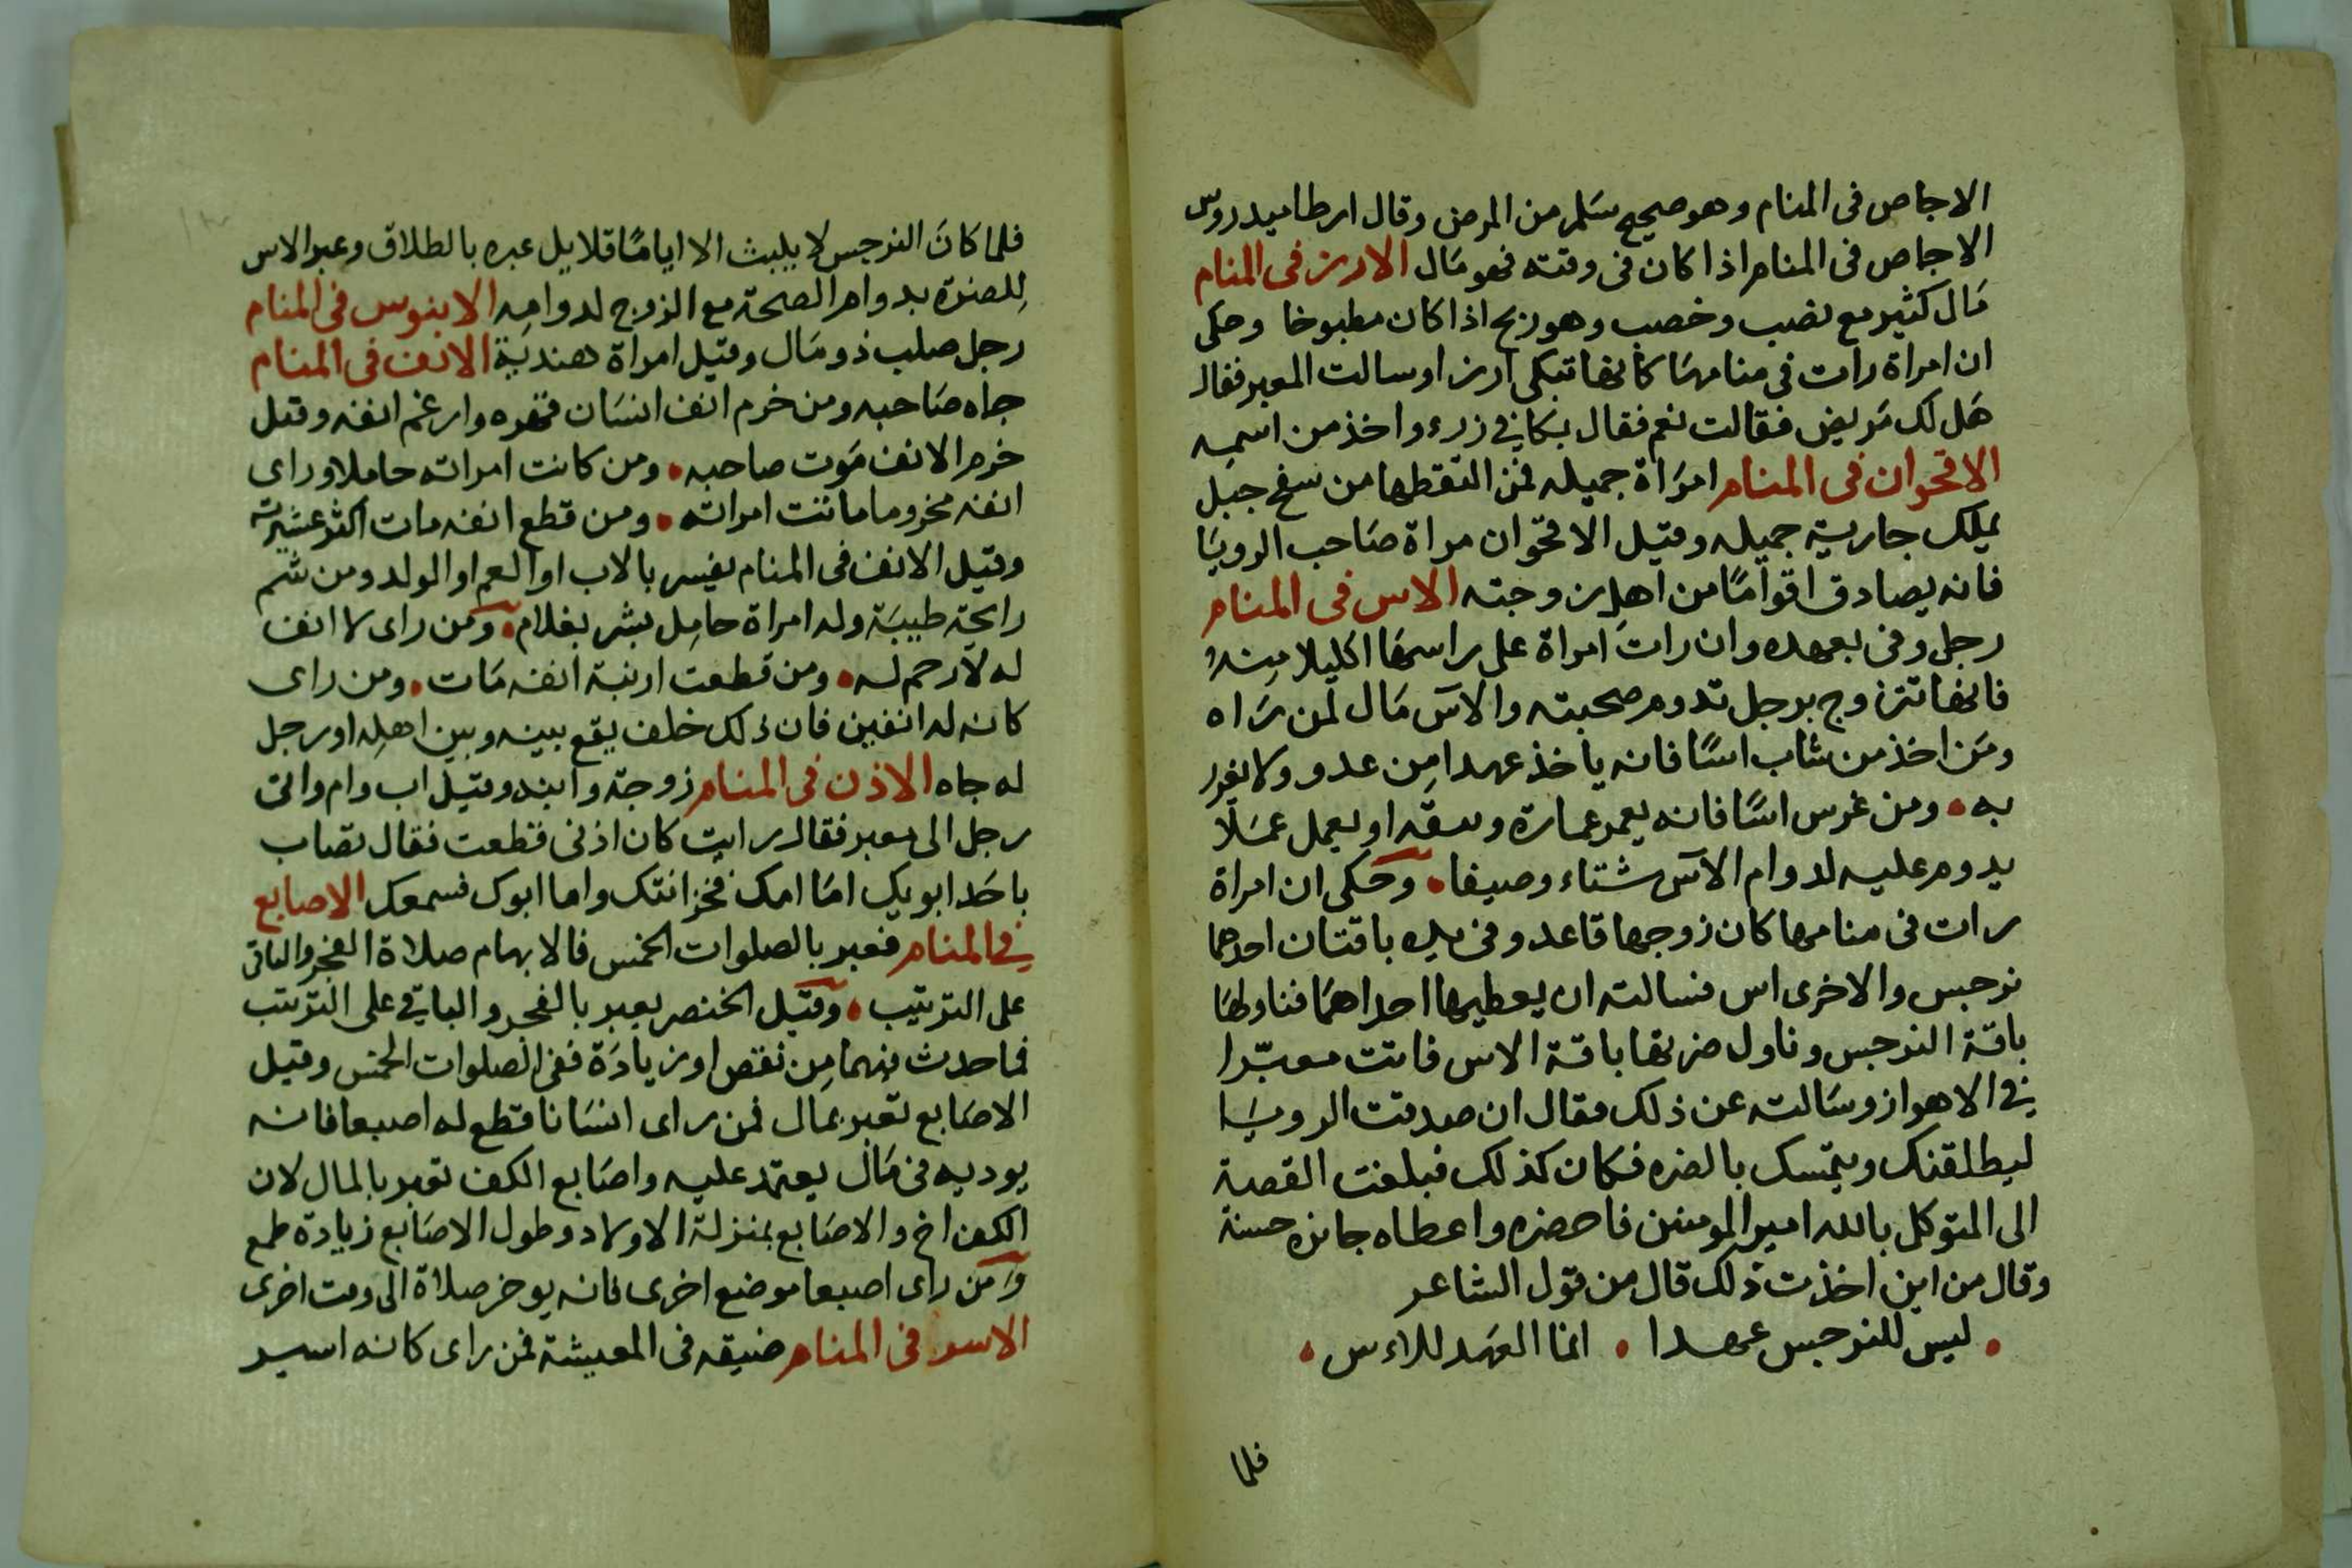 الاجاص فى المنام وهو صحيح سلم من المرض وقال ارطاميدروس
الاجاص فى المنام اذا كان فى وقته فهو مال الارز فى المنام
مال كثير مع نصب وخصب وهو ربح اذا كان مطبوخا وحكى
ان امراة رات فى منامها كانها تبكى ارزا وسالت المعبر فقال
هل لك مريض فقالت نعم فقال بكا واخذ من اسمه
الاقحوان فى المنام امراة جميله فمن التقطها من سفح جبل
يملك جارية جميله وقيل الاقحوان مراة صاحب الرويا
فانه يصادق اقواما من اهل زوجته الاس فى المنام
رجل وفى بعهده وان رات امراة على راسها اكليلا منه
فانها تتزوج برجل تدوم صحبته والاس مال لمن راه
ومن اخذ من شاب اسا فانه ياخذ عهدا من عدو ولا يغرر
به • ومن غرس اسا فانه يعمر عمارة او يعمل عملا
يدوم عليه لدوام الاس شتاء وصيفا • وحكى ان امراة
رات فى منامها كان زوجها قاعد وفى يده باقتان احدهما
نرجس والاخرى اس فسالته ان يعطيها احداهما فناولها
باقة النرجس وناول ضرتها باقة الاس فاتت معبرا
في الاهواز وسالته عن ذلك فقال ان صدقت الرويا
ليطلقنك ويتمسك بالضره فكان كذلك فبلغت القصة
الى المتوكل بالله امير المومنين فاحضره واعطاه جايزه حسنة
وقال من اين اخذت ذلك قال من قول الشاعر
• ليس للنرجس عهدا • انما العهد للاءس •
فلما
فلما كان النرجس لا يلبث الا اياما قلايل عبره بالطلاق وعبر الاس
للضرة بدوام الصحة مع الزوج لدوامه الابنوس فى المنام
رجل صلب ذو مال وقيل امراة هندية الانف فى المنام
جاه صاحبه ومن خرم انف انسان قهره وارغم انفه وقيل
خرم الانف موت صاحبه • ومن كانت امراته حاملا وراى
انفه مخروما ماتت امراته • ومن قطع انفه مات اكثر عشيرته
وقيل الانف فى المنام يفسر بالاب او العم او الولد ومن شم
رايحة طيبة وله امراة حامل بشر بغلام • ومن راى لا انف
له لا رحم له • ومن قطعت ارنبة انفه مات • ومن راى
كانه له انفين فان ذلك خلف يقع بينه وبين اهله او رجل
له جاه الاذن فى المنام زوجة وابنه وقيل اب وام واتى
رجل الى معبر فقال رايت كان اذنى قطعت فقال تصاب
باحد ابويك اما امك فخزانتك واما ابوك فسمعك الاصابع
في المنام فعبر بالصلوات الخمس فالابهام صلاة الفجر والباقى
على الترتيب • وقيل الخنصر يعبر بالفجر والباقي على الترتيب
فما حدث فيهما من نقص او زيادة ففى الصلوات الخمس وقيل
الاصابع تعبر بمال فمن راى انسانا قطع له اصبعا فانه
يوديه فى مال يعتمد عليه واصابع الكف تعبر بالمال لان
الكف اخ والاصابع بمنزلة الاولاد وطول الاصابع زيادة طمع
ومن راى اصبعا موضع اخرى فانه يوخر صلاة الى وقت اخرى
الاسر فى المنام ضيقه فى المعيشة فمن راى كانه اسير